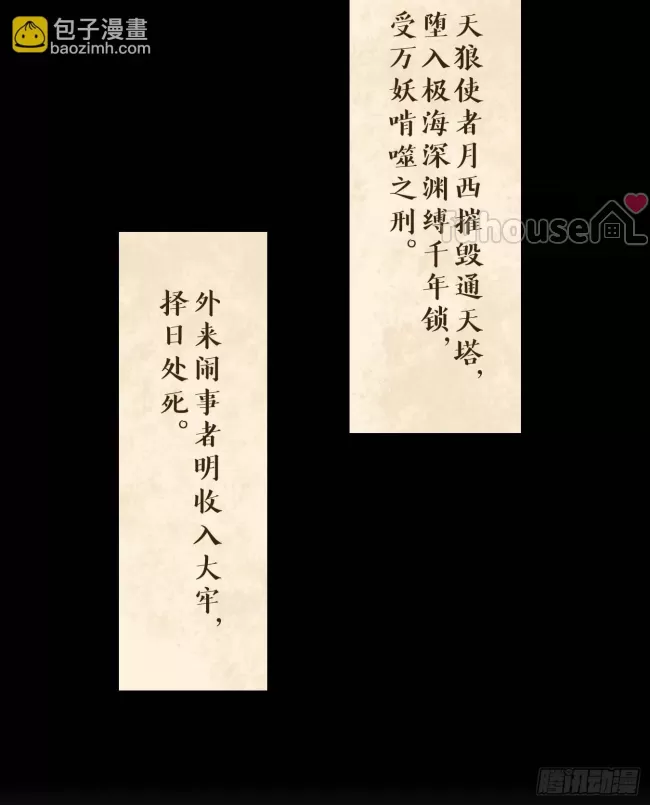 包子漫畫
baozimh.com
天狼使者月西摧毁通天塔，
堕入极海深渊缚千年锁，
受万妖啃噬之刑。
house
外来闹事者明收入大牢，
择日处死。
腾讯动漫